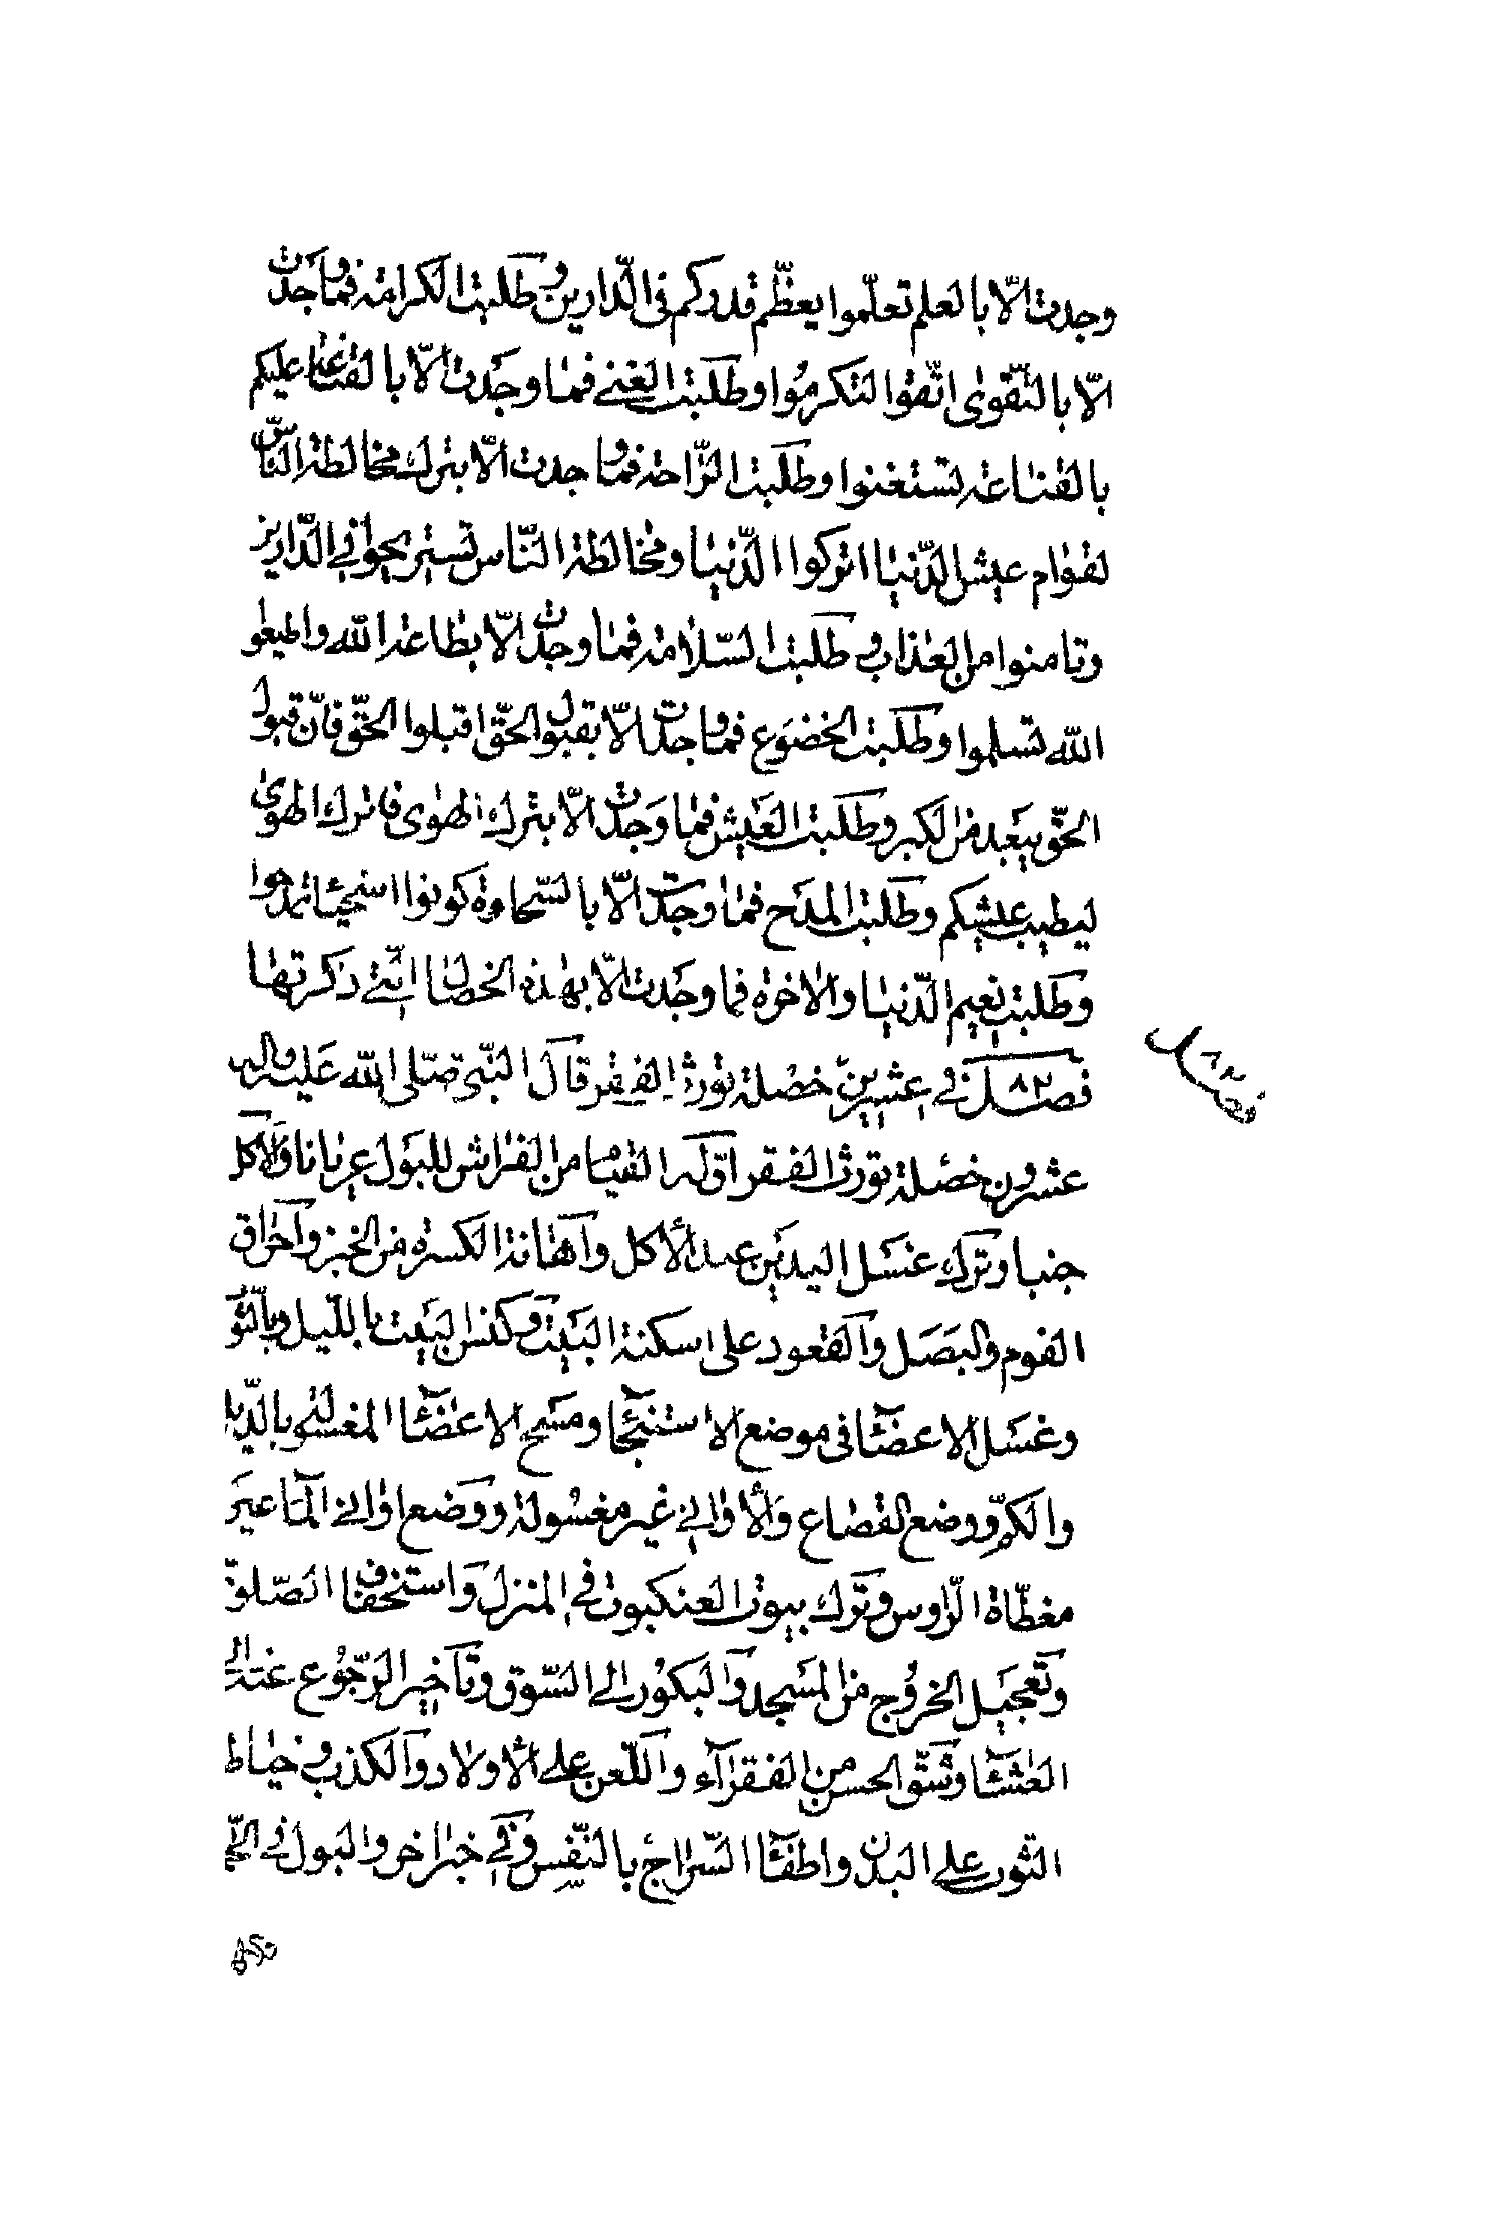 وجدت الّا بالعلم تعلّموا يعظّم قدركم فى الدّارين و طلبت الكرامة فما وجدت
الّا بالتّقوى اتّقوا لتكرموا و طلبت الغنى فما وجدت الّا بالقناعة عليكم
بالقناعة تستغنوا و طلبت الرّاحة فما وجدت الّا بترك مخالطة النّاس
لقوام عيش الدّنيا اتركوا الدّنيا و مخالطة النّاس تستريحوا فى الدّارين
و تامنوا من العذاب و طلبت السّلامة فما وجدت الّا بطاعة الله و اطيعوا
الله تسلموا و طلبت الخضوع فما وجدت الّا بقبول الحقّ اقبلوا الحقّ فانّ قبول
الحقّ يبعد من الكبر و طلبت العيش فما وجدت الّا بترك الهوى فاترك الهوى
ليطيب عيشكم و طلبت المدح فما وجدت الّا بالسّخاوة كونوا اسخيّا تمدحوا
و طلبت نعيم الدّنيا و الاخرة فما وجدت الّا بهذه الخصال الّتى ذكرتها
فصل ٨٢ فى عشرين خصلة تورث الفقر قال النّبى صلّى الله عليه و اله
عشرون خصلة تورث الفقر اوّله القيام من الفراش للبول عريانا و الاكل
جنبا و ترك غسل اليدين عند الأكل و اهانة الكسرة من الخبز و احراق
الفوم و البصل و القعود على اسكنة البيت و كنس البيت بالليل و بالثّو
و غسل الاعضآ فى موضع الاستنجآ و مسح الاعضآ المغسولة بالذّيل
و الكمّ و وضع القصاع و الأوانى غير مغسولة و وضع اوانى المآ غير
مغطّاة الرّاوس و ترك بيوت العنكبوت فى المنزل و استخفاف الصّلوة
و تعجيل الخروج من المسجد و البكور الى السّوق و تآخير الرّجوع عنه الى
العشآ و شقّ الحسن من الفقرآء و اللّعن على الأولاد و الكذب و خياط
الثّور على البدن و اطفآ السّراج بالنّفس و فى خبر اخر و البول فى الحّم
فصل ٨٢